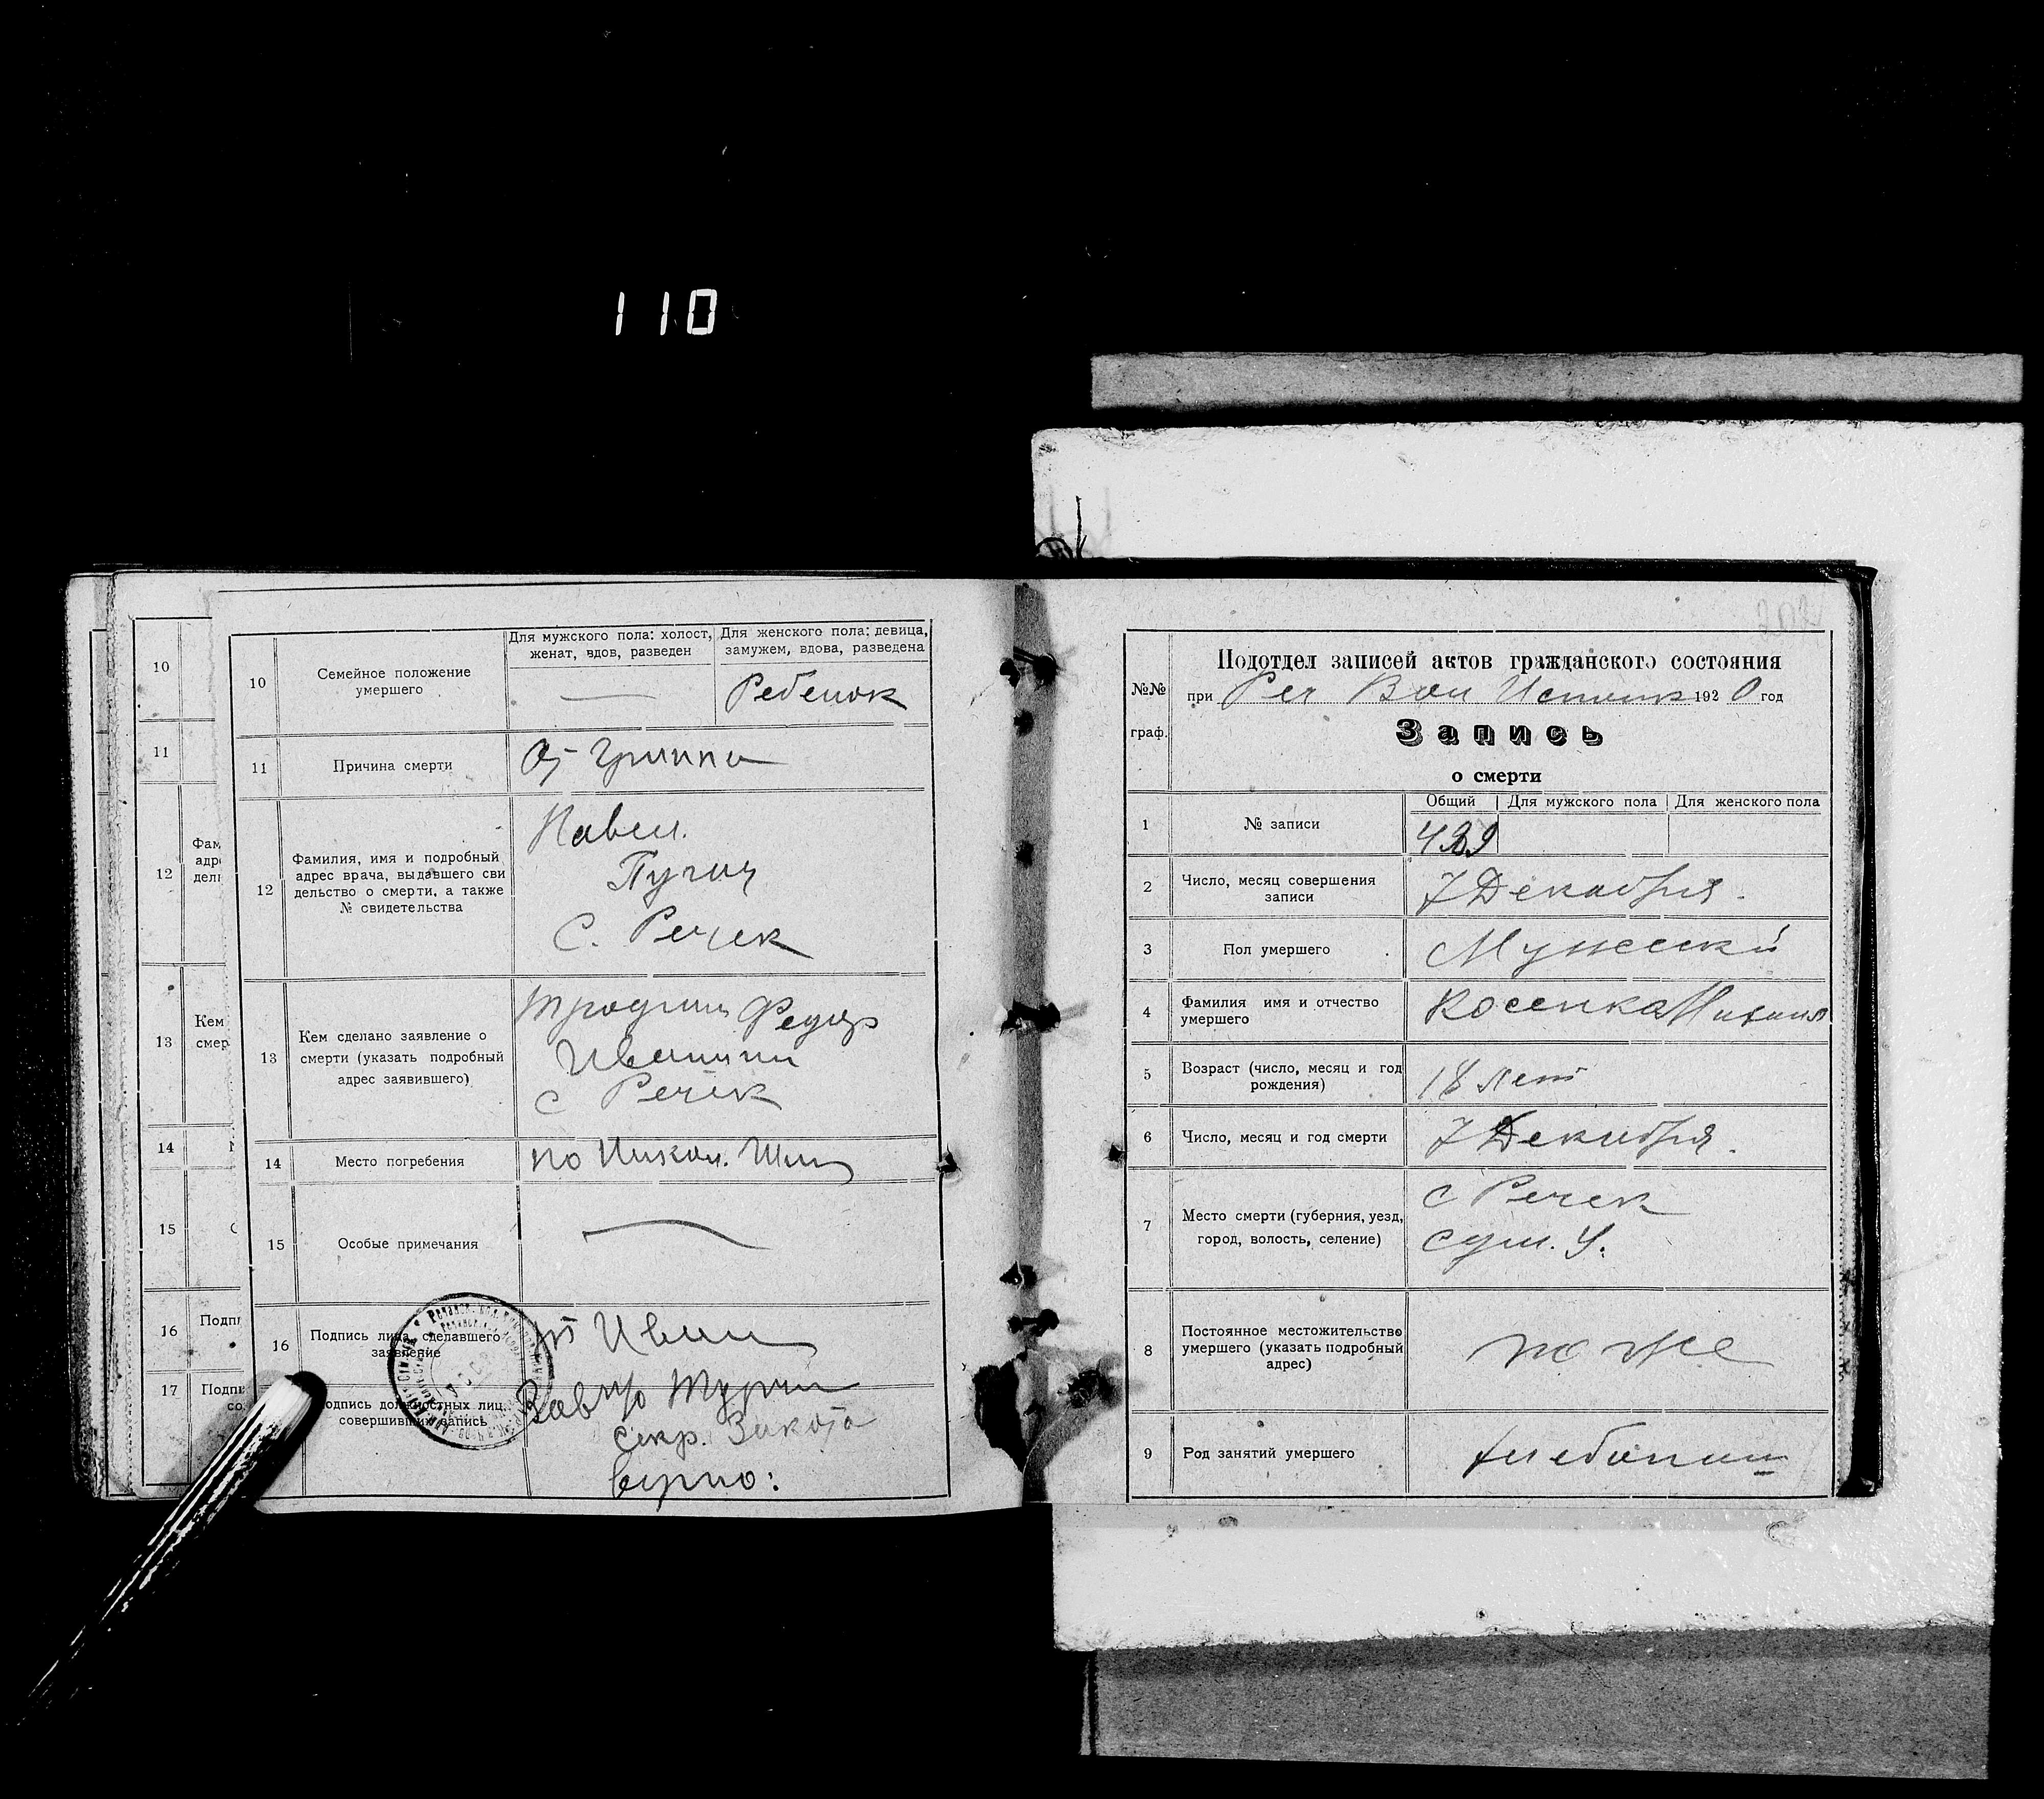 110
10
11
12
Фам
адр
дел
13
Кем
смер
14
15
16
Подпи
17
Подпи
со
10
Семейное положение
умершего
Для мужского пола: холост,
женат, вдов, разведен
Для женского пола: девица,
замужем, вдова, разведена
Ребенок
11
Причина смерти
От гриппа
12
Фамилия, имя и подробный
адрес врача, выдавшего сви
дельство о смерти, а также
№ свидетельства
Павел
с. Речек
13
Кем сделано заявление о
смерти (указать подробный
адрес заявившего)
Федор
с Речек
14
Место погребения
по
15
Особые примечания
16
Подпись лица, сделавшего
заявление
17
Подпись должностных лиц,
совершивших запись
секр.
верно:
202
№№
граф.
Подотдел записей актов гражданского состояния
при Реч Вол 1920 год
Запись
о смерти
Общий
Для мужского пола
Для женского пола
1
№ записи
2
Число, месяц совершения
записи
7 Декабря.
3
Пол умершего
Мужеский
4
Фамилия имя и отчество
умершего
Косенка
5
Возраст (число, месяц и год
рождения)
18 лет
6
Число, месяц и год смерти
7 Декабря.
7
Место смерти (губерния, уезд,
город, волость, селение)
с Речек
сум. у.
8
Постоянное местожительство
умершего (указать подробный
адрес)
то же
9
Род занятий умершего
хлебопаш